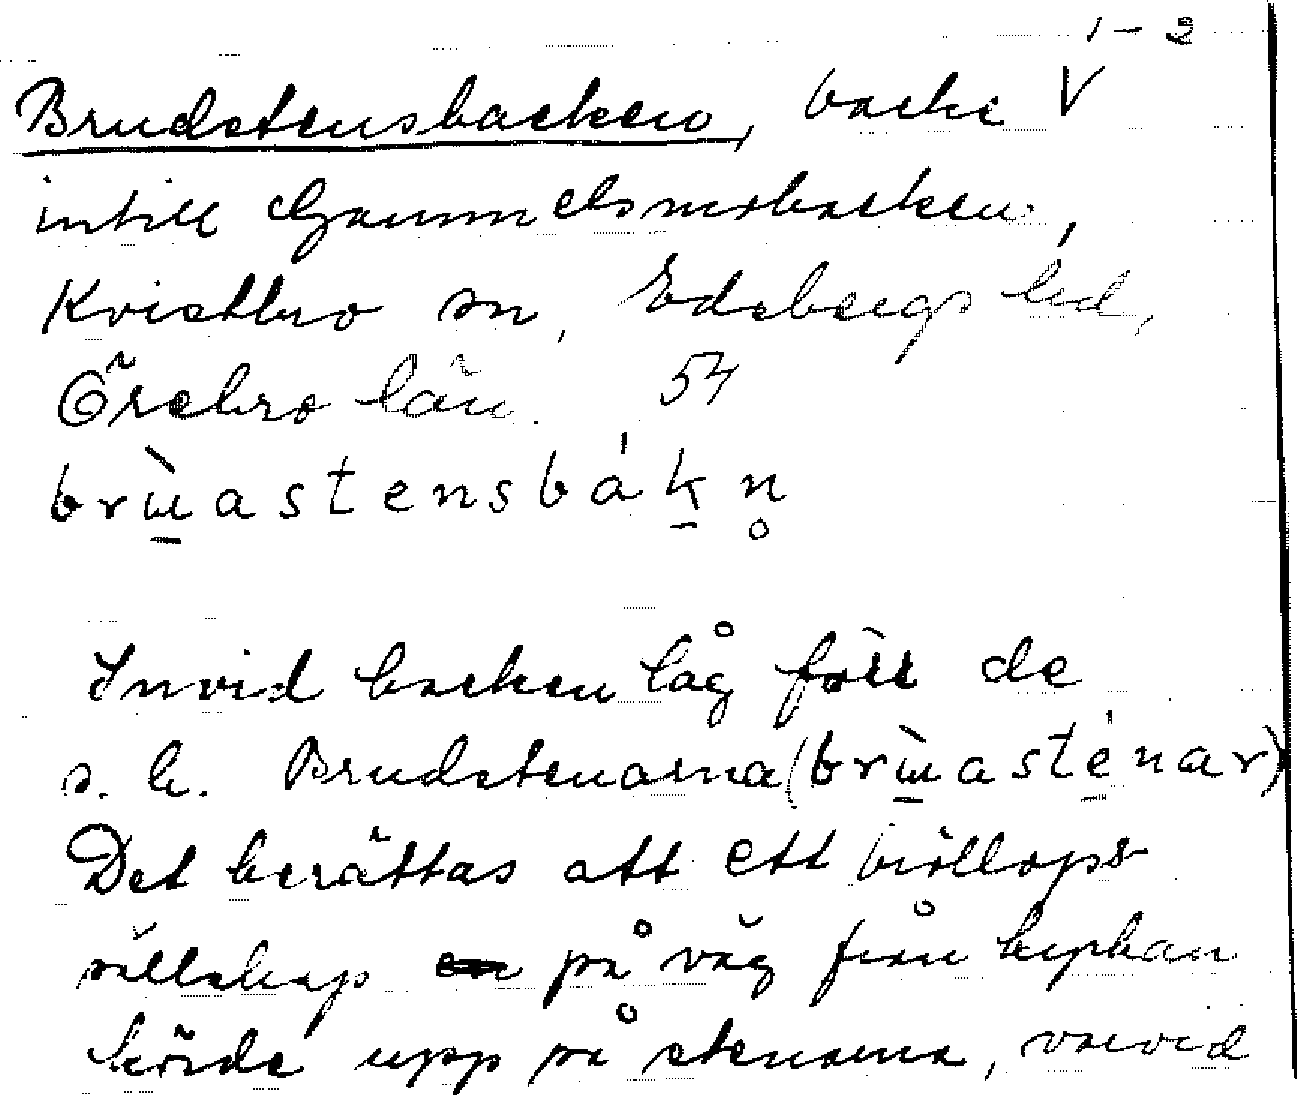 1-2
Brudstensbacken, backe V
intill Gammelsmobacken,
Kvistbro sn, Edsbergs hd,
Örebro län. 54
brɯ̀astensbákn̥
Invid backen låg förr de
s.k. Brudstenarna (brɯ̀asténar)
Det berättas att ett bröllops
sällskap på väg från kyrkan
körde upp på stenarna, varvid